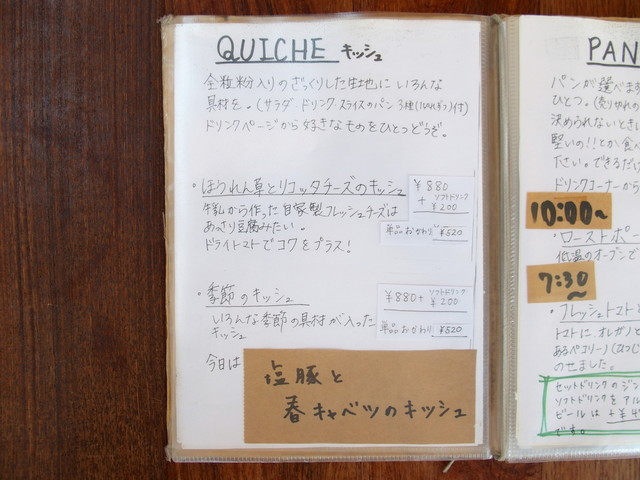 QUICHE キッシュ
全粒粉入りのざっくりした生地にいろんな
具材を。(サラダ・ドリンク・スライスのパン3種
ドリンクページから好きなものをひとつどうぞ。
・ほうれん草とリコッタチーズのキッシュ
牛乳から作った自家製フレッシュチーズは
あっさり豆腐みたい。
ドライトマトでコクをプラス!
¥880
+ ソフトドリンク ¥200
単品おかわり ¥520
・季節のキッシュ
いろんな季節の具材が入った
キッシュ
¥880+ ソフトドリンク ¥200
単品おかわり ¥520
今日は
塩豚と
春キャベツのキッシュ
PAN
パンが選べます
ひとつ。(売り切れの
決められないときは
堅いの!!とか食べ
下さい。できるだけ
ドリンクコーナーから
10:00~
・ローストポー
低温のオーブンで
7:30~
・フレッシュトマトと
トマトに、オレガノと
あるペコリーノ(ひつじ
のせました。
セットドリンクのジン
ソフトドリンクを アル
ビールは +¥4
です。